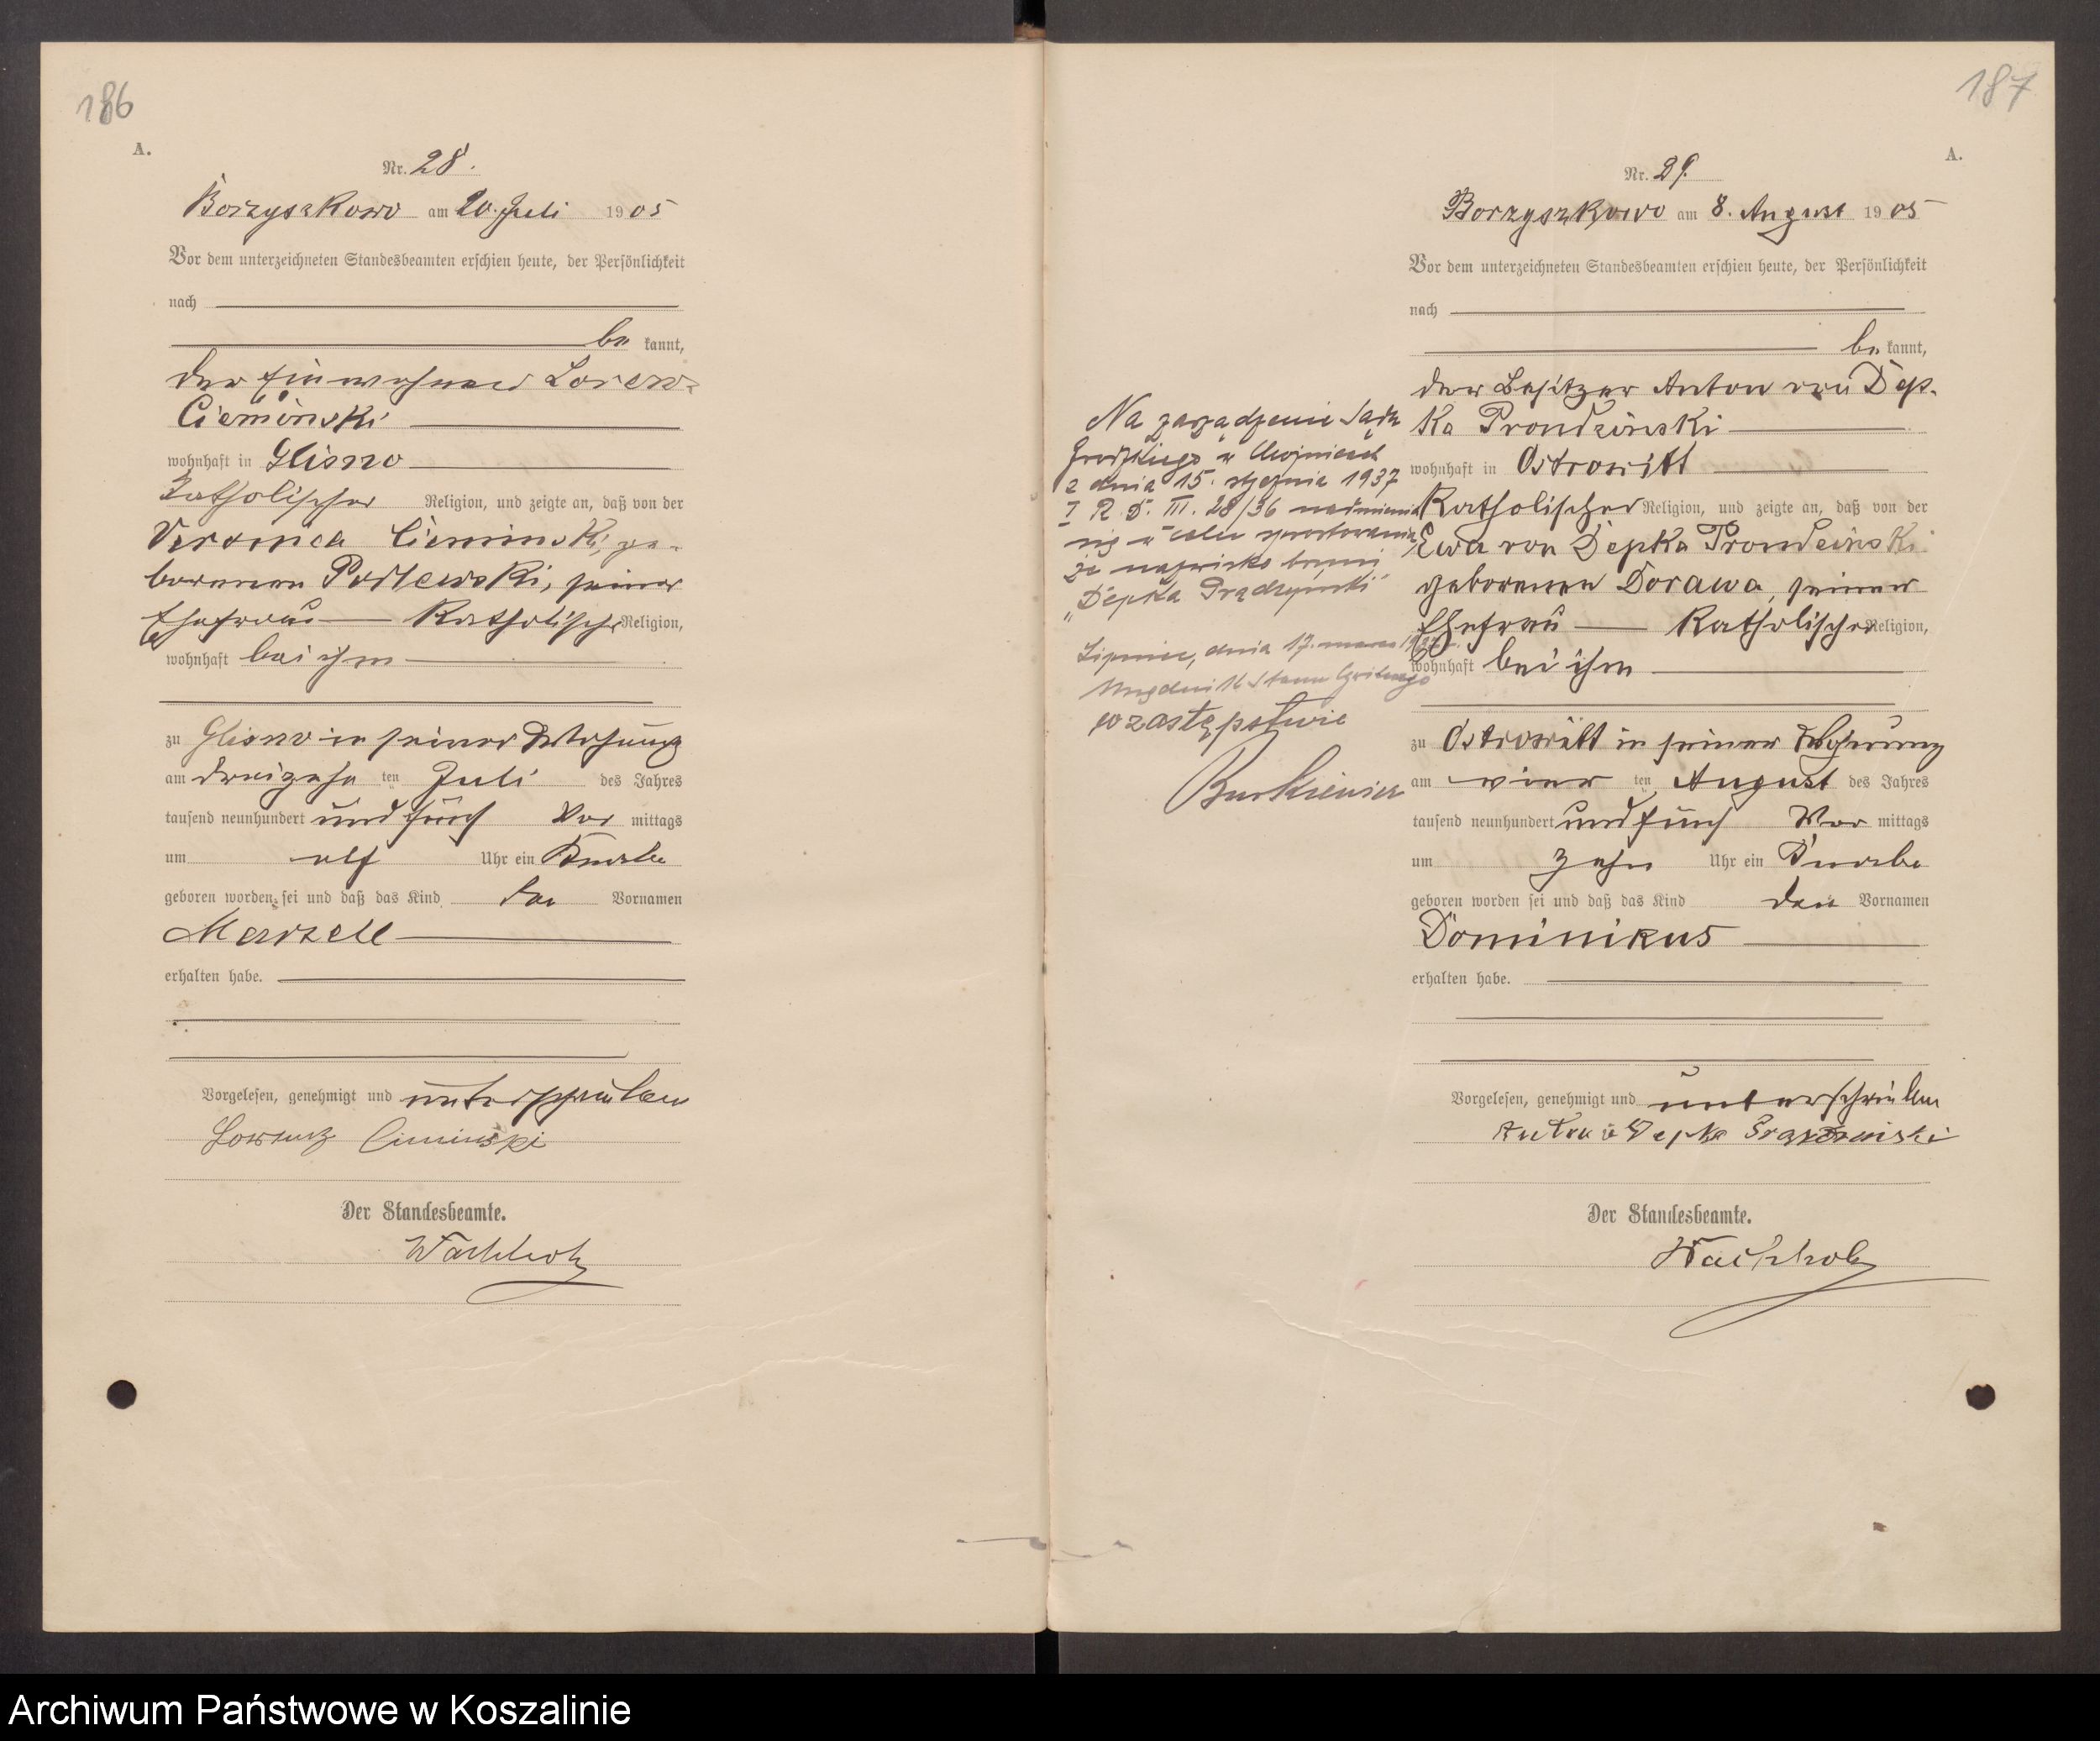 186
A.
Nr. 28.
Borzyszkowo am 20. Juli 1905
Vor dem unterzeichneten Standesbeamten erschien heute, der Persönlichkeit
nach
be kannt,
der Einwohner Lorenz
Cieminski
wohnhaft in Glisno
Katholischer Religion, und zeigte an, daß von der
Veronica Cieminski, ge-
borenen Podlewski, seiner
Ehefrau Katholischer Religion,
wohnhaft bei ihm
zu Glisno in seiner Wohnung
am dreizehn ten Juli des Jahres
tausend neunhundert und fünf Vor mittags
um elf Uhr ein Knabe
geboren worden sei und daß das Kind den Vornamen
Marzell
erhalten habe.
Vorgelesen, genehmigt und unterschrieben
Lorenz Cieminski
Der Standesbeamte.
Wachholz
187
A.
Nr. 29.
Borzyszkowo am 8. August 1905
Vor dem unterzeichneten Standesbeamten erschien heute, der Persönlichkeit
nach
be kannt,
der Besitzer Anton von Dep-
ka Prondzinski
wohnhaft in Ostrowitt
Katholischer Religion, und zeigte an, daß von der
Ewa von Depka Prondzinski
geborenen Dorawa, seiner
Ehefrau Katholischer Religion,
wohnhaft bei ihm
zu Ostrowitt in seiner Wohnung
am vier ten August des Jahres
tausend neunhundert und fünf Vor mittags
um zehn Uhr ein Knabe
geboren worden sei und daß das Kind den Vornamen
Dominikus
erhalten habe.
Vorgelesen, genehmigt und unterschrieben
Anton v Depka
Der Standesbeamte.
Wachholz
Na zarządzenie Sądu
Grodzkiego w Chojnicach
z dnia 15. stycznia 1937
I R. D. III. 28/36 nadmienia
się w celu sprostowania,
że nazwisko brzmi
„Depka Prądzyński"
Lipnica, dnia 17. marca 1937 r.
Urzędnik Stanu Cywilnego
w zastępstwie
Archiwum Państwowe w Koszalinie